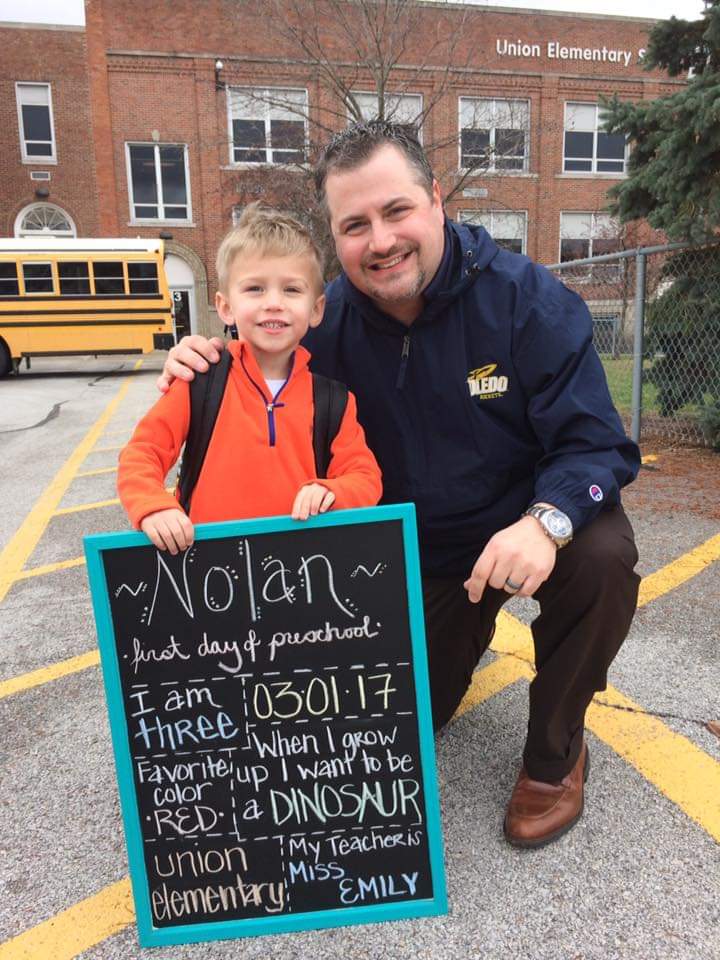 Union Elementary S
3
OLEDO
ROCKETS
~Nolan~
·first day of preschool·
I am
three
03·01·17
Favorite
color
·RED·
When I grow
up I want to be
a DINOSAUR
union
elementary
My Teacher is
Miss
EMILY